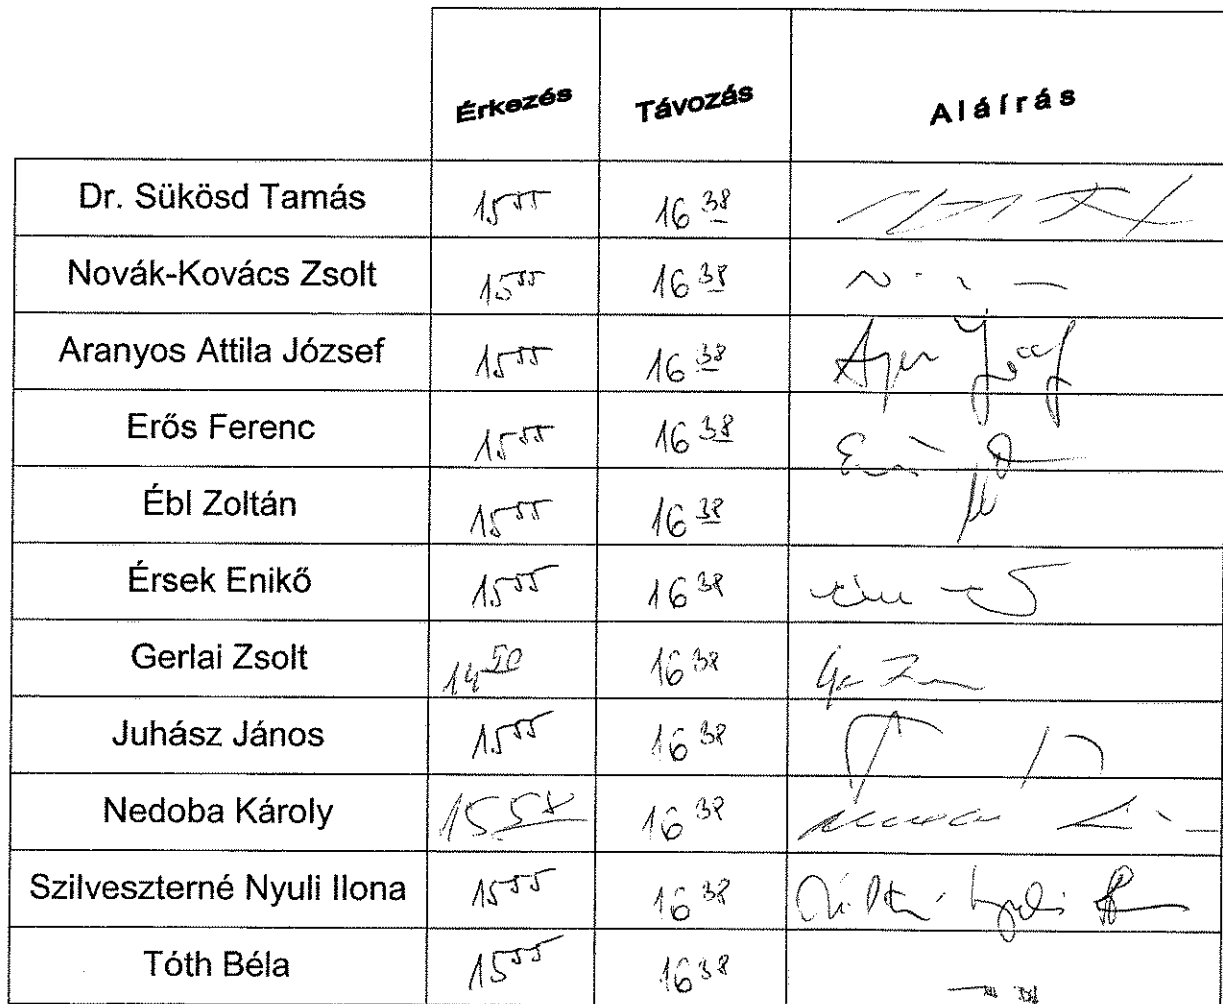 Érkezés Távozás Aláírás
Dr. Sükösd Tamás 15 55 16 38
Novák-Kovács Zsolt 15 55 16 38
Aranyos Attila József 15 55 16 38
Erős Ferenc 15 55 16 38
Ébl Zoltán 15 55 16 38
Érsek Enikő 15 55 16 38
Gerlai Zsolt 14 50 16 38
Juhász János 15 55 16 38
Nedoba Károly 15 58 16 38
Szilveszterné Nyuli Ilona 15 55 16 38
Tóth Béla 15 55 16 38